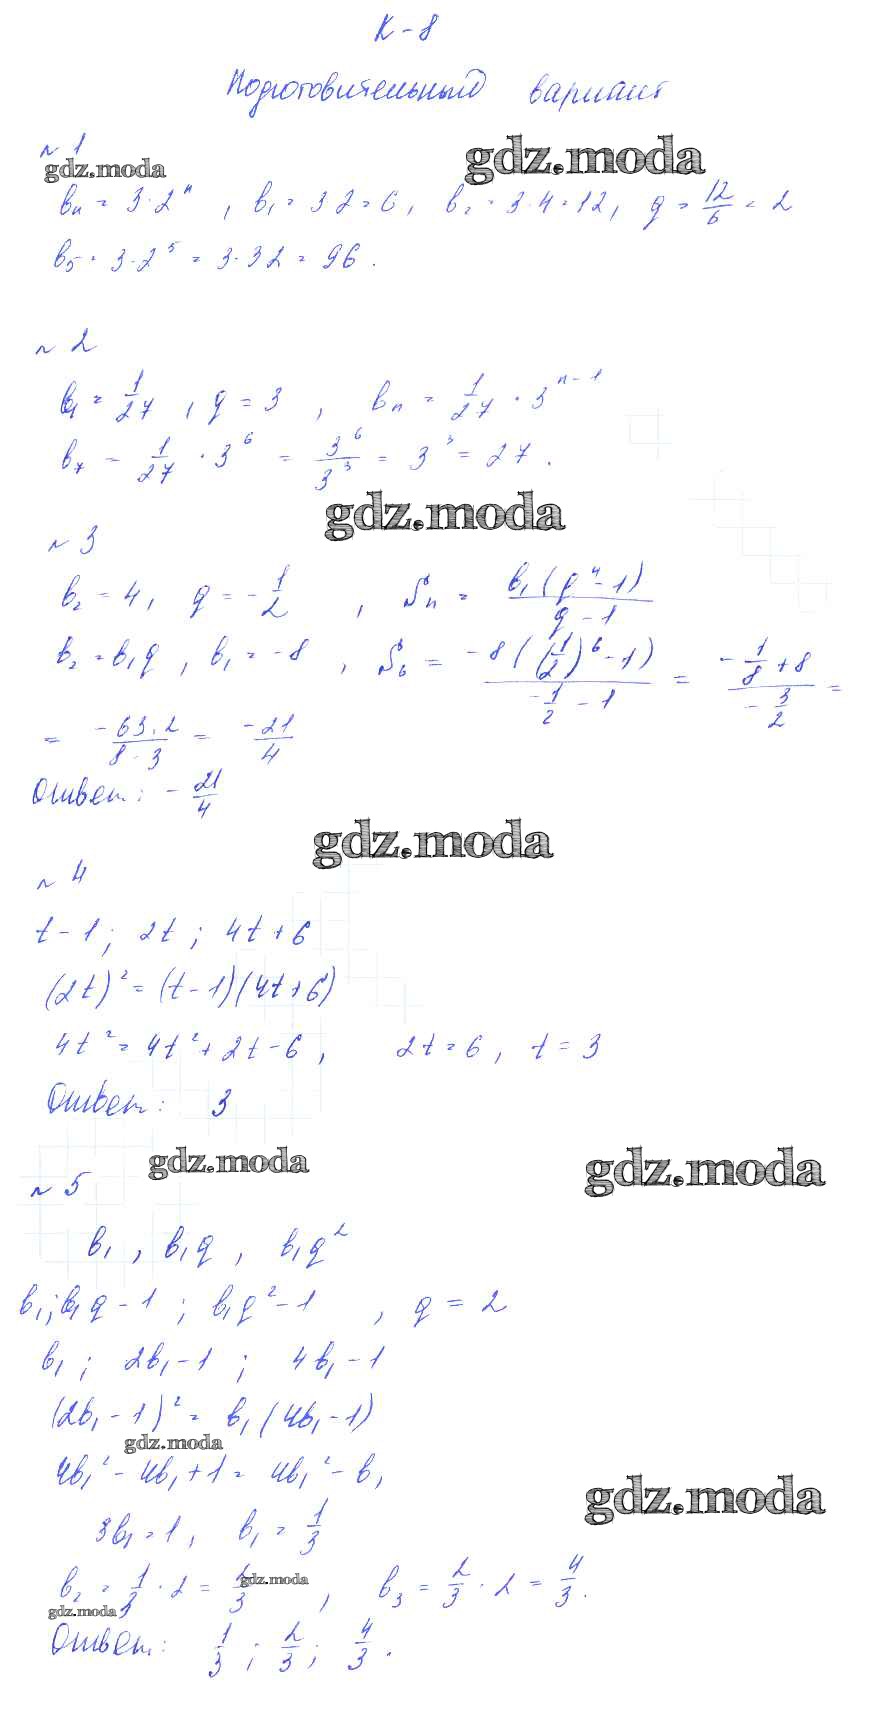 К-8
Подготовительный вариант
№ 1
gdz.moda
gdz.moda
bₙ = 3·2ⁿ , b₁ = 3·2 = 6, b₂ = 3·4 = 12, q = 12/6 = 2
b₅ = 3·2⁵ = 3·32 = 96.
№ 2
b₁ = 1/27 , q = 3 , bₙ = 1/27 · 3ⁿ⁻¹
b₇ = 1/27 · 3⁶ = 3⁶/3³ = 3³ = 27.
gdz.moda
№ 3
b₂ = 4, q = -1/2 , Sₙ = b₁(qⁿ-1)/(q-1)
b₂ = b₁q , b₁ = -8 , S₆ = -8((1/2)⁶-1)/(-1/2-1) = (-1/8+8)/(-3/2) =
= -63·2/(8·3) = -21/4
Ответ: -21/4
gdz.moda
№ 4
t-1; 2t; 4t+6
(2t)² = (t-1)(4t+6)
4t² = 4t²+2t-6, 2t = 6, t = 3
Ответ: 3
gdz.moda
gdz.moda
№ 5
b₁ , b₁q , b₁q²
b₁; b₁q-1 ; b₁q²-1 , q = 2
b₁ ; 2b₁-1 ; 4b₁-1
(2b₁-1)² = b₁(4b₁-1)
gdz.moda
4b₁²-4b₁+1 = 4b₁²-b₁
gdz.moda
3b₁ = 1, b₁ = 1/3
b₂ = 1/3 · 2 = 2/3 , b₃ = 2/3 · 2 = 4/3.
gdz.moda
gdz.moda
Ответ: 1/3 ; 2/3 ; 4/3.